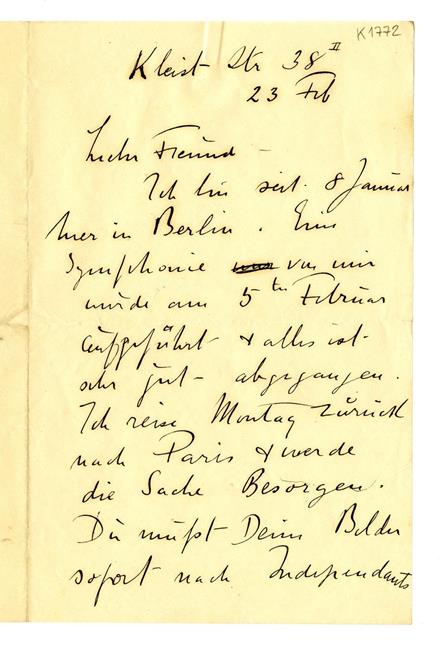 K1772
Kleist Str 38 II
23 Feb
Lieber Freund –
Ich bin seit 8 Januar
hier in Berlin. Eine
Symphonie von mir
wurde am 5ten Februar
aufgeführt + alles ist
sehr gut abgegangen.
Ich reise Montag zurück
nach Paris + werde
die Sache Besorgen.
Du mußt Deine Bilder
sofort nach Independants